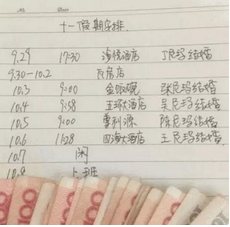 十一假期安排
9.29 17:30 海悦酒店 丁尼玛结婚
9.30-10.2 瓦房店
10.3 9:00 金饭碗 张尼玛结婚
10.4 9:58 王琢大酒店 吴尼玛结婚
10.5 9:00 香利源 陈尼玛结婚
10.6 11:28 四海大酒店 王尼玛结婚
10.7 闲
10.8 上班